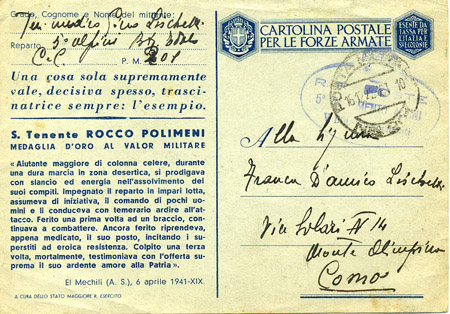 Grado, Cognome e Nome del mittente:
Ten. medico Pino
Reparto 5° Alpini
C.C. P. M. 201
Una cosa sola supremamente
vale, decisiva spesso, trasci-
natrice sempre: l'esempio.
S. Tenente ROCCO POLIMENI
MEDAGLIA D'ORO AL VALOR MILITARE
«Aiutante maggiore di colonna celere, durante
una dura marcia in zona desertica, si prodigava
con slancio ed energia nell'assolvimento dei
suoi compiti. Impegnato il reparto in impari lotta,
assumeva di iniziativa, il comando di pochi uo-
mini e li conduceva con temerario ardire all'at-
tacco. Ferito una prima volta ad un braccio, con-
tinuava a combattere. Ancora ferito riprendeva,
appena medicato, il suo posto, incitando i su-
perstiti ad eroica resistenza. Colpito una terza
volta, mortalmente, testimoniava con l'offerta su-
prema il suo ardente amore alla Patria».
El Mechili (A. S.), 6 aprile 1941-XIX.
A CURA DELLO STATO MAGGIORE R. ESERCITO
CARTOLINA POSTALE
PER LE FORZE ARMATE
ESENTE DA
TASSA PER
L'ITALIA E
SUE COLONIE
POSTA MILITARE
Alla Signora
Franca D'Amico
Via Solari N 14
Monte Olimpino
Como